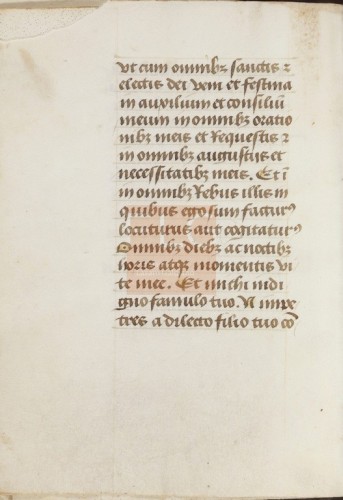 Vt cum omnibꝫ sanctis ⁊
electis dei veni et festina
in auxilium et consiliū
meum in omnibꝫ oratio
nibꝫ meis et Requestis ⁊
in omnibꝫ augustiis et
necessitatibꝫ meis. Et ī
in omnibꝫ Rebus illis in
quibus ego sum facturꝰ
locuturus aut cogitaturꝰ
Omnibꝫ diebꝫ ac noctibꝫ
horis atqꝫ momentis vi
te mee. Et michi indi
gno famulo tuo. N impe
tres a dilecto filio tuo cō